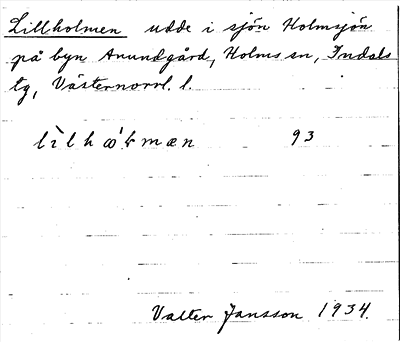 Lillholmen udde i sjön Holmsjön
på byn Anundgård, Holms sn, Indals
tg, Västernorrl. l.
lìlhɷ́ɫmæn 93
Valter Jansson 1934.